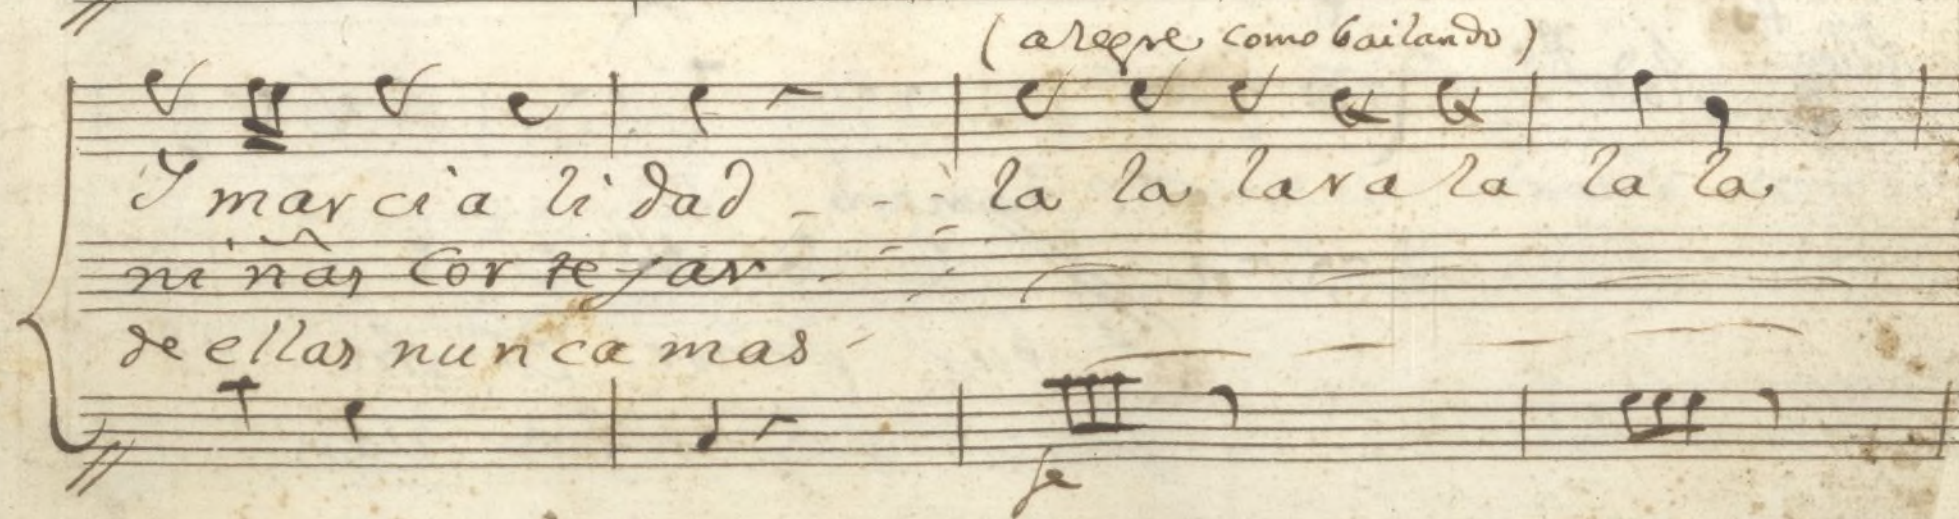 (alegre como bailando)
Y marcia li dad - - - la la lara la la la
ni ñas Cor te jar - - -
de ellas nunca mas -
fe